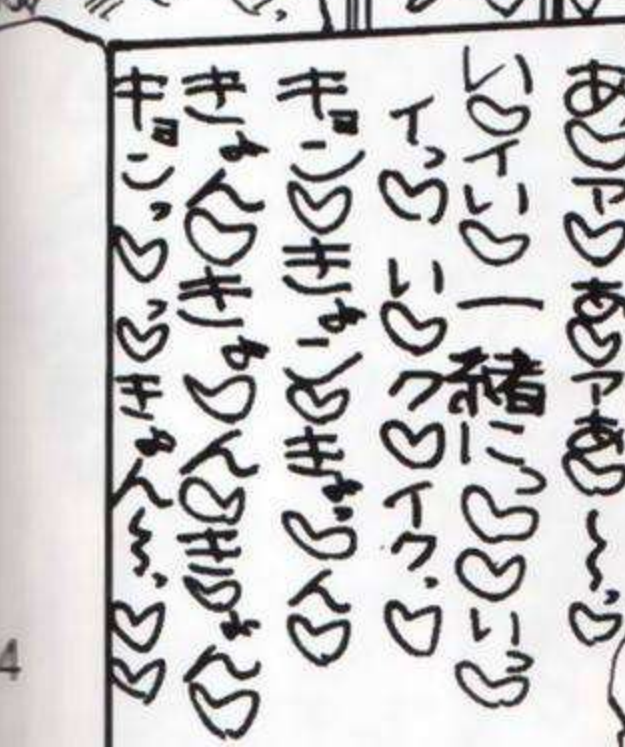 あ♡ア♡あ♡アあ♡〜っ♡
い♡イい♡一緒にっ♡♡いっ♡
イっ♡い♡ク♡イク、♡
ギョン♡きょン♡きょっ♡ん♡
きょん♡きょ♡ん♡き♡ょん♡
キョンっ♡っ♡きょん〜、♡♡
4